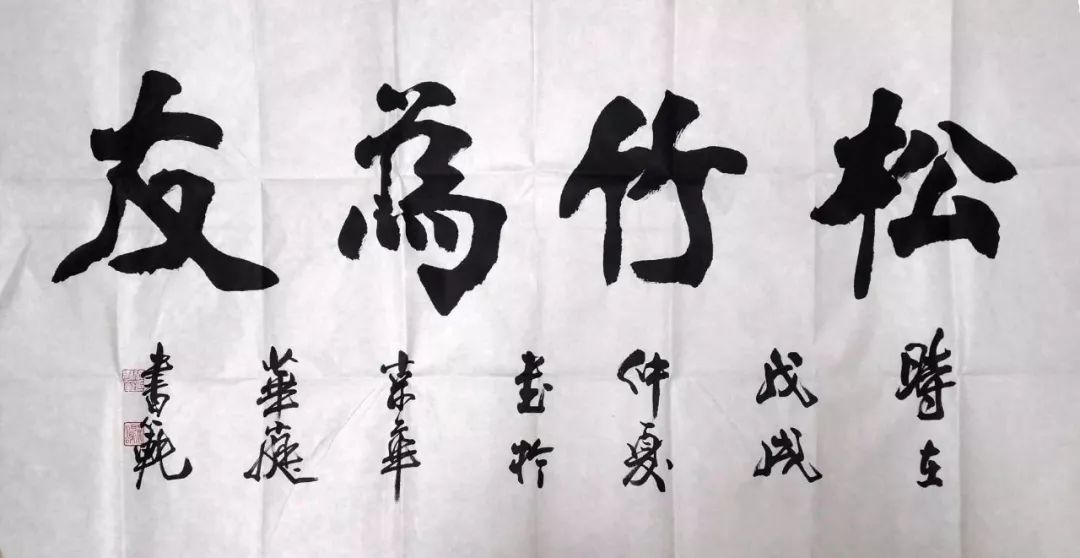 松竹為友
時在
戊戌
仲夏
書於
京華
華
書範